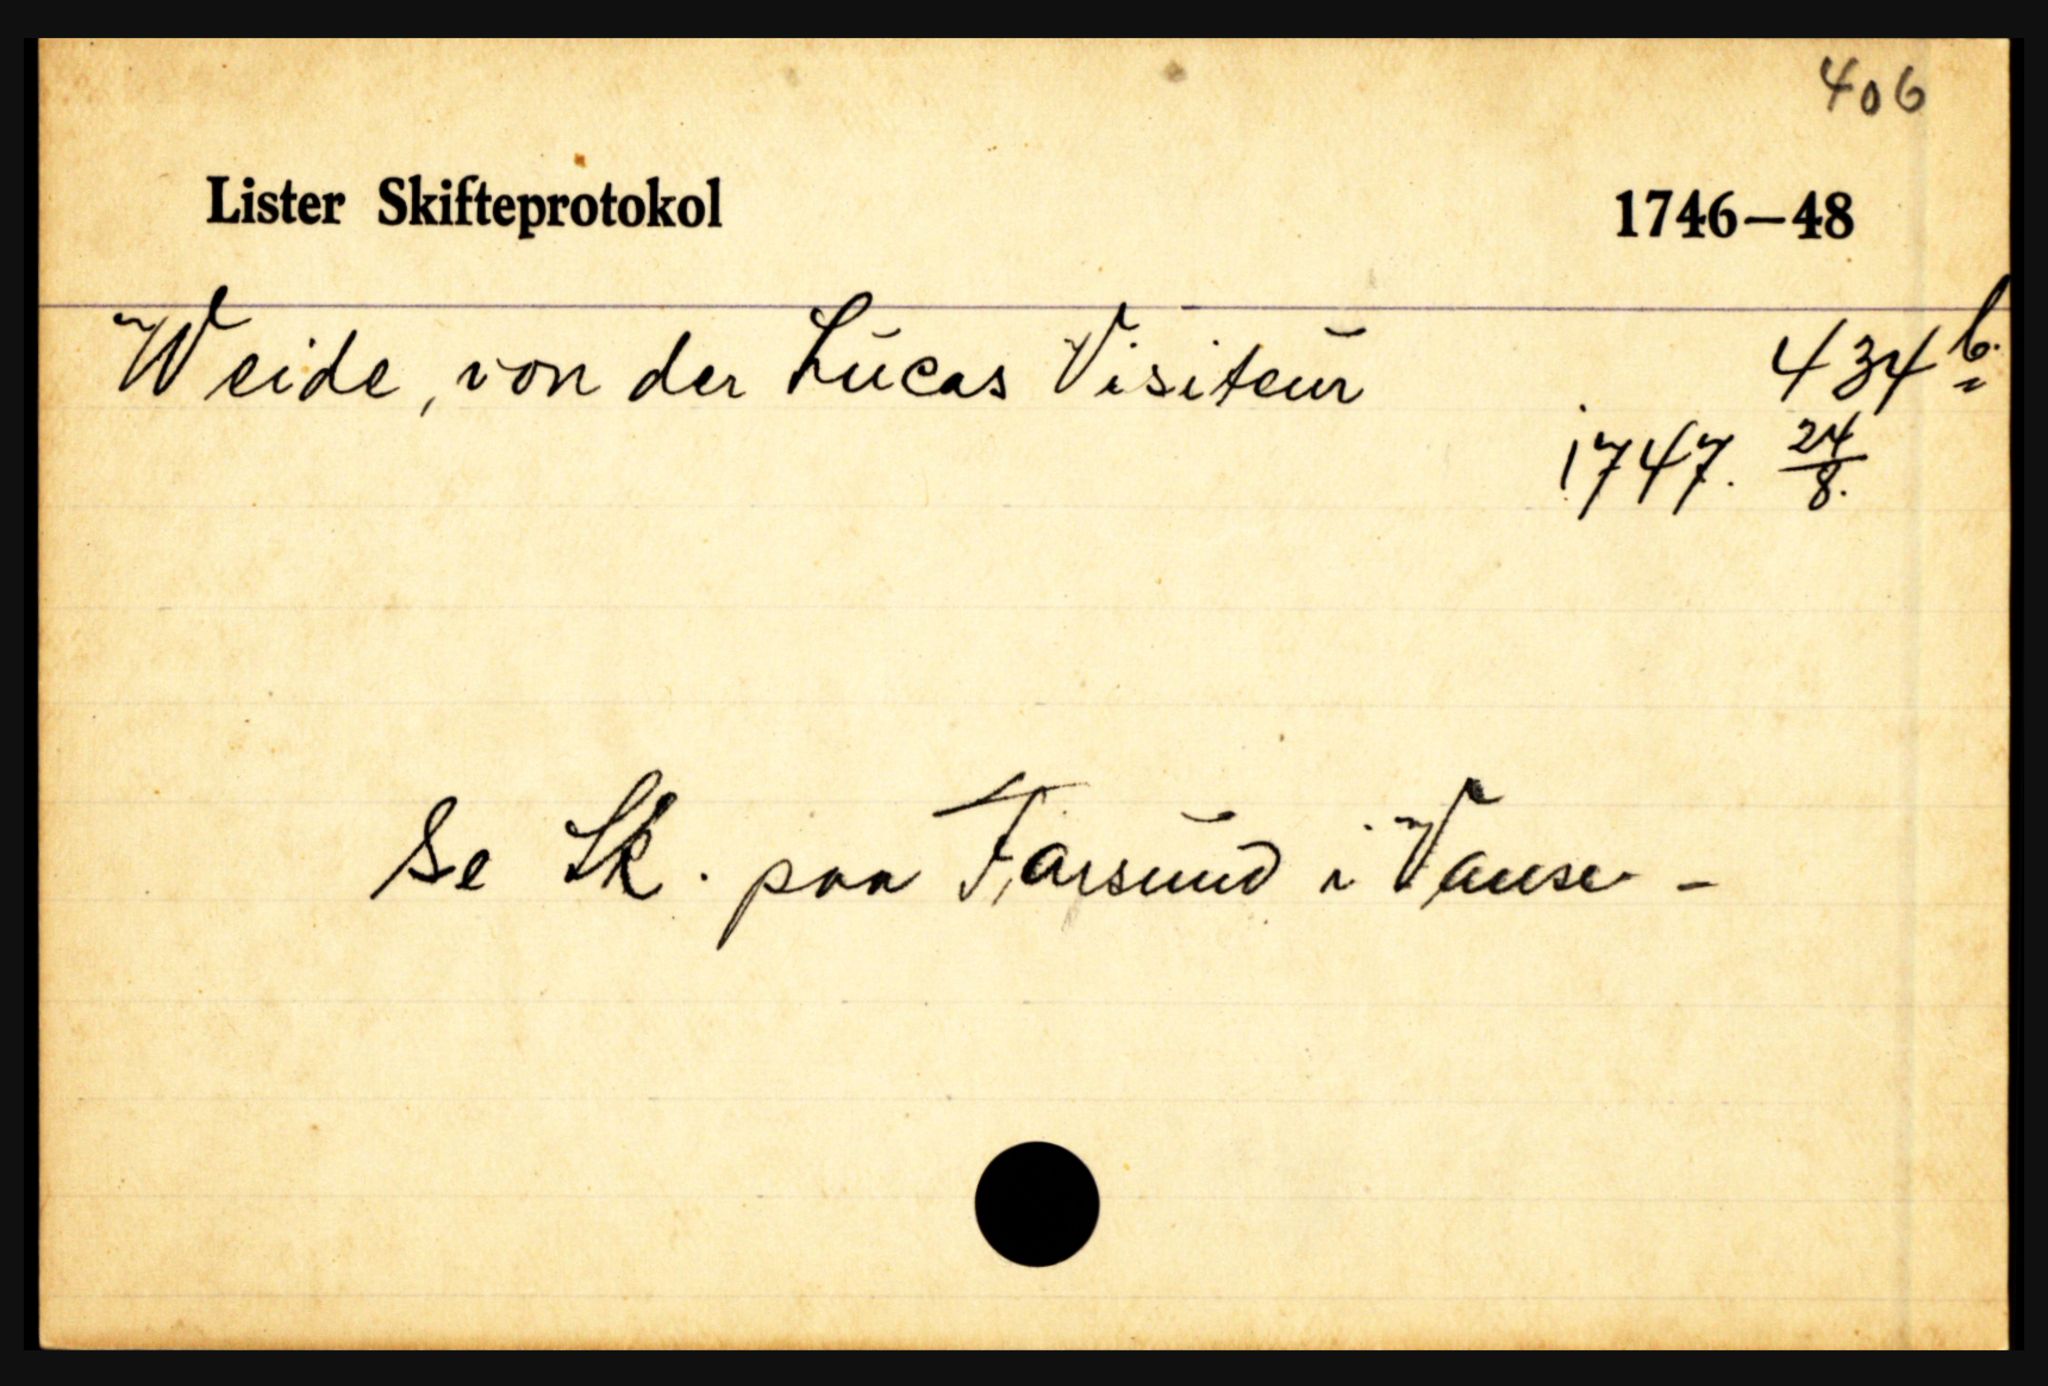 406
Lister Skifteprotokol 1746–48
Weide, von der Lucas Visiteur 434 b.
1747. 24/8.
Se Sk. paa Farsund i Vanse –